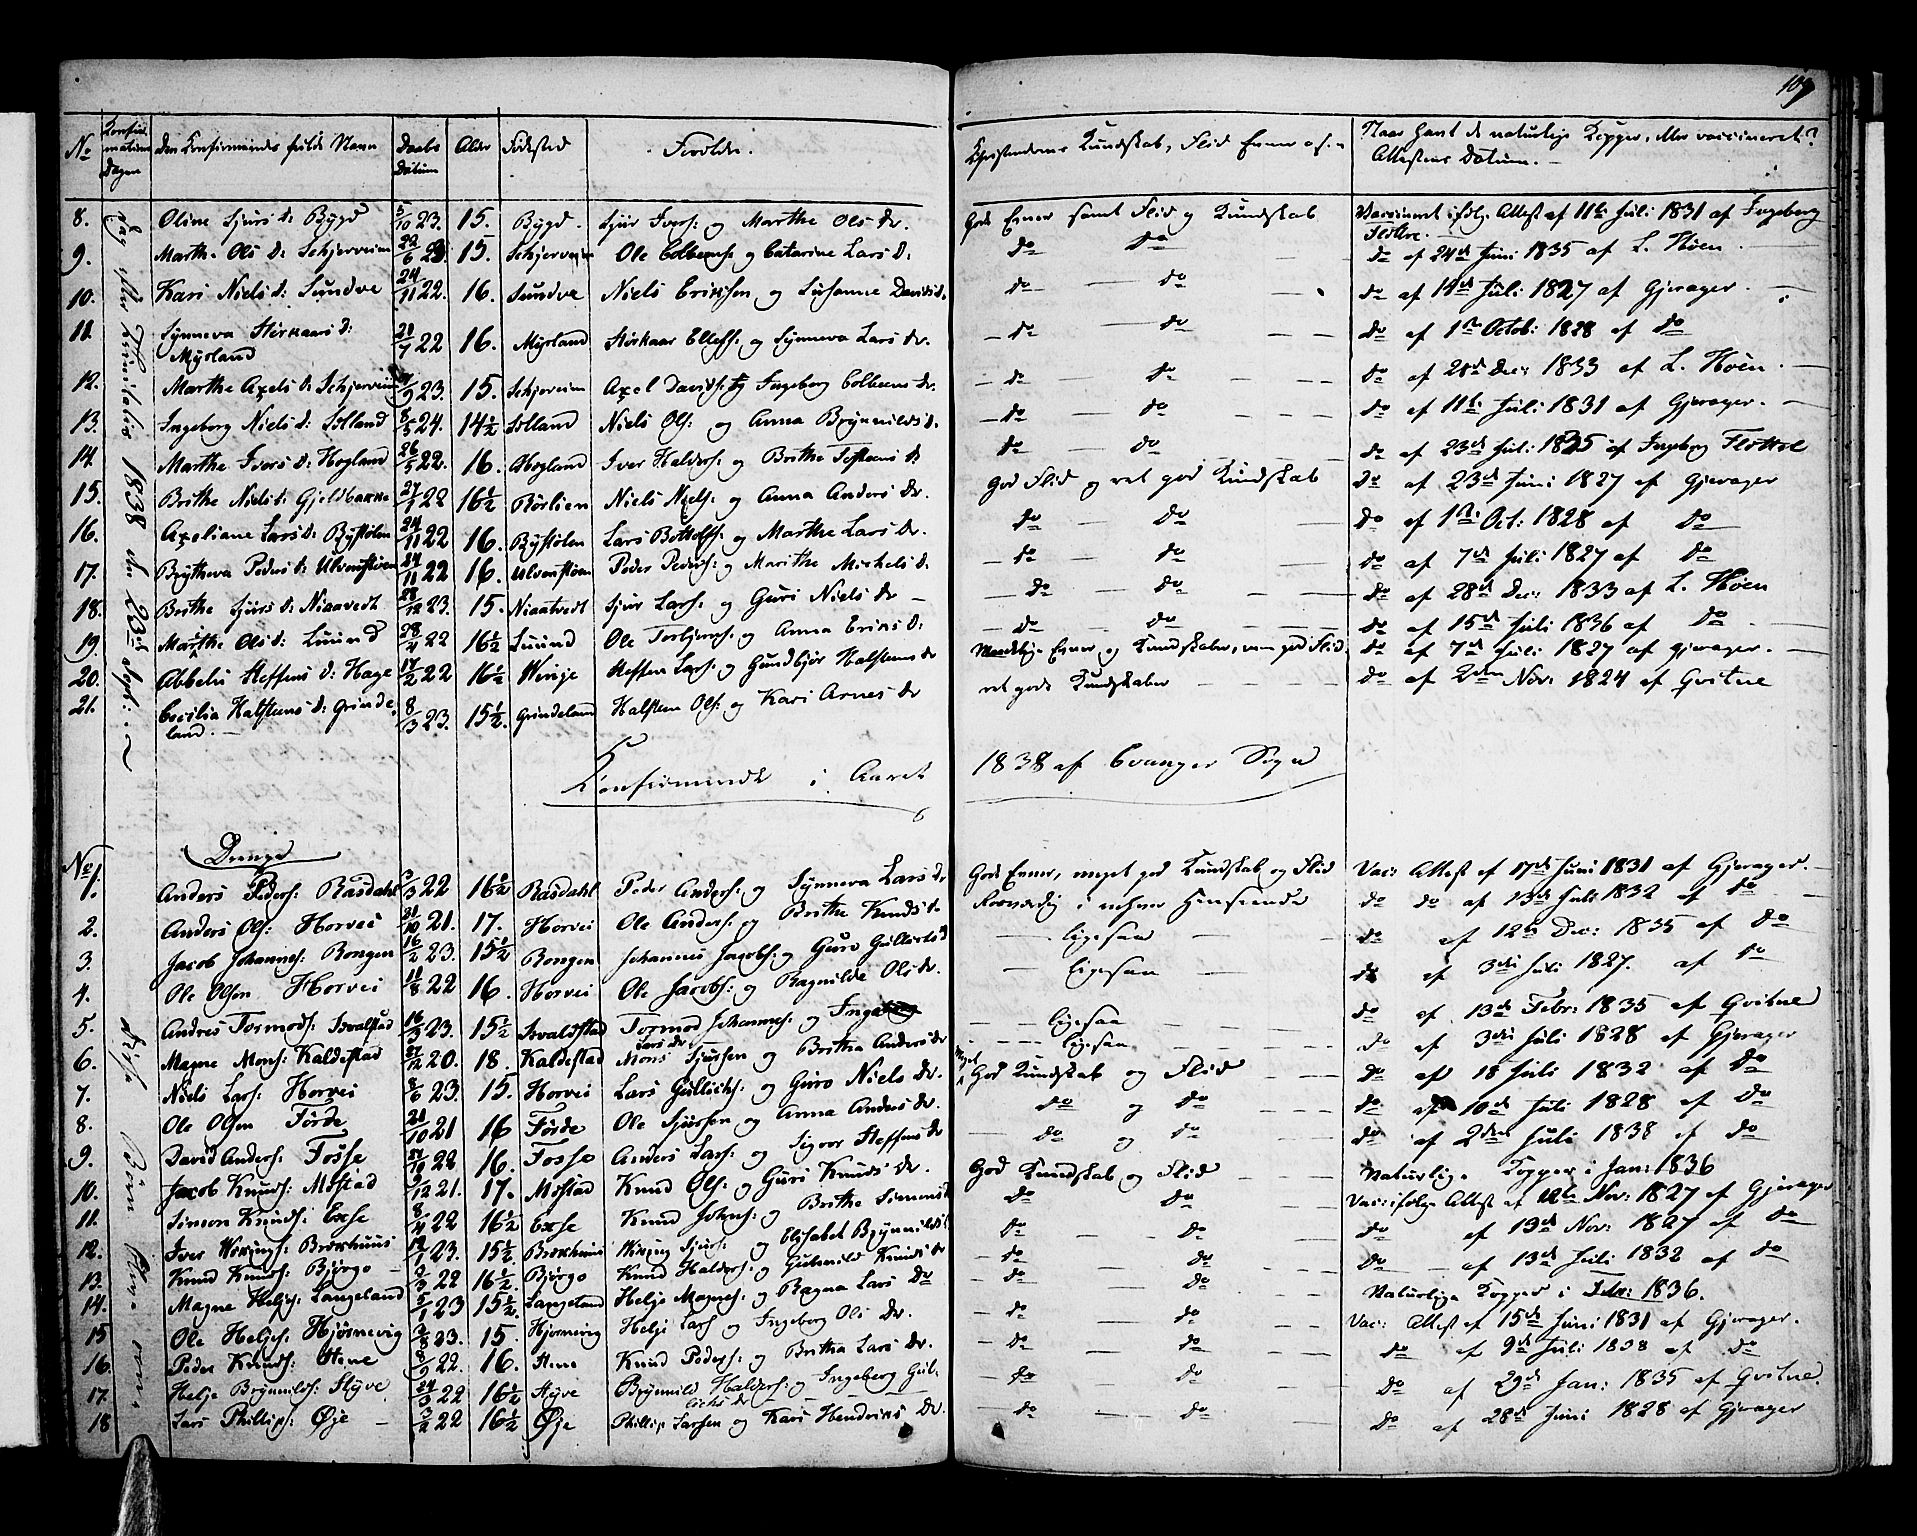 109
No Confirmations Dagen Den Confirmeredes fulde Navn Daabs Datum Alder Födested Forældre. Christendoms Kundskab, Flid Evner o.s.v. Naar havt de naturlige Kopper, eller vaccineret? Attestens Datum.
8. Oline Sjurs d: Bygd 5/10 23. 15. Bygd. Sjur Ivers: og Marthe Ols Dr. Gode Evner samt Flid og Kundskab Vaccineret ifölge Attest af 11te Juli 1831 af Ingeborg Flöttre.
9. Marthe Ols D: Schjerveim 22/6 23. 15. Schjerveim Ole Colbensz: og Catarine Lars D: do do do af 24de Juni 1835 af L. Höen
10. Kari Niels d: Sundve 24/11 22. 16. Sundve Niels Erichsen og Susanne Davids d. do do do af 11te Juli 1827 af Gjerager.
11. Synneva Störkaars d: Myrland 21/7 22 16. Myrland Störkaar Ellefs: og Synneva Lars Dr. do do do af 1ste Octob: 1828 af do
12. Marthe Axels d: Schjerveim /9 23. 15. Schjerveim Axel Davids: og Ingeborg Colbens Dr. do do do af 28de Dec: 1833 af L. Höen.
13. Ingeborg Niels d: Sölland 8/5 24. 14½ Sölland Niels Ols: og Anna Brynnilds d. do do do af 11te Juli 1831 af Gjerager.
14. Marthe Ivers d: Hogland 26/5 22. 16. Hogland Iver Halders: og Brithe Tosteens d: do do do af 23de Juli 1835 af Ingeborg Flöttre
15. Brithe Niels d: Gjeldbakke 27/1 22 16½ Rörlien Niels Niels: og Anna Anders Dr. God Flid og ret god Kundskab do af 23de Juni 1827 af Gjerager
16. Axeliane Lars d: Bystölen 24/11 22 16. Bystölen Lars Bottolfs: og Marthe Lars Dr. do do do af 1ste Oct: 1828 af do
17. Brytheva Peders d: Ulvenstöen 24/11 22 16. Ulvenstöen Peder Peders: og Marithe Michels d: do do do af 7de Juli 1827 af do
18. Brithe Sjurs d: Niaavedt 28/12 23. 15. Niaatvedt Sjur Lars: og Guri Niels Dr do do do af 28de Dec: 1833 af L. Höen
19. Marthe Ols d: Luund 28/4 22 16½ Luund Ole Torbjörns: og Anna Eriks D: do do do af 15de Juli 1836 af do
20. Abbelu Steffens d: Hage 17/2 22 16½ Winje Steffen Lars: og Gundbjör Halsteens dr Maadelige Evner og Kundskaber, men god Flid. do af 7de Juli 1827 af Gjerager.
21. Cecilia Halsteens d: Grindeland. 8/3 23. 15½. Grindeland Halsteen Ols: og Kari Arnes Dr ret gode Kundskaber do af 2den Nov: 1824 af Gvitne
Dag efter Trinitatis 1838 den 23de Sept:
Confirmerede i Aaret 1838 af Evanger Sogn
Drenge
No 1. Anders Peders: Rasdahl 3/3 22 16½ Rasdahl Peder Anders: og Synneva Lars Dr Gode Evner, meget god Kundskab og Flid Vac: Attest af 17de Juni 1831 af Gjerager.
2. Anders Ols: Horvei 31/10 21. 17. Horvei Ole Anders: og Brithe Knuds d. Roesværdig i enhver Henseende do do af 13de Juli 1832 af do
3. Jacob Johannes: Bongen 16/2 23. 15½ Bongen Johannes Jacobs: og Guro Gullichsd ligesaa do af 12te Dec: 1835 af do
4. Ole Olsen Horvei 11/8 22 16. Horvei Ole Jacobs: og Ragnilde Ols Dr. ligesaa do af 3die Juli 1827. af do
5. Andres Tormods: Isvalstad 16/3 23. 15½ Isvaldstad Tormod Johannes: og Ingeborg Lars Dr ligesaa do af 13de Febr: 1835 af Gvitne
6. Magne Mons: Kaldestad 27/12 20. 18. Kaldestad Mons Sjursen og Britha Anders Dr ligesaa do af 3die Juli 1828 af Gjerager
7. Niels Lars: Horvei 8/6 23. 15. Horvei Lars Gullichs: og Guro Niels Dr. Meget God Kundskab og Flid do af 18 Juli 1832 af Do
8. Ole Olsen Förde 21/10 21 16 Förde Ole Sjursen og Anna Anders Dr. do og do do af 10de Juli 1828 af do
9. David Anders: Fosse /10 22 16. Fosse Anders Lars: og Sigvor Steffens Dr do og do do af 2den Juli 1838 af do
10. Jacob Knuds: Mostad 9/12 21. 17. Mostad Knud Ols: og Guri Knuds Dr. God Kundskab og Flid Naturlige Kopper i Jan: 1836
11. Simon Knuds: Exse 8/4 22 16½ Exse Knud Johns: og Brithe Simens d do do Vac: ifölge Attest af 12te Nov: 1827 af Gjerager
12. Iver Wikings: Brækhuus 12/1 23. 15½. Brækhuus Wiking Sjurs: og Elisabet Brynnilds d do do do af 13de Nov: 1827 af do
13. Knud Knuds: Björgo 2/3 22 16½. Björgo Knud Halders: og Guhnild Knuds d do do do af 13de Juli 1832 af do
14. Magne Heljes: Langeland 5/1 23 15½. Langeland Helje Magnes: og Ragna Lars Dr do do Naturlige Kopper i Febr: 1836.
15 Ole Heljes: Hjörnevig 2/3 23. 15. Hjörnevig Helje Lars og Ingeborg Ols Dr. do do Vac: Attest af 15de Juni 1831 af Gjerager.
16. Peder Knuds: Hene 8/9 22. 16. Hene Knud Peders: og Britha Lars Dr. do do do af 9de Juli 1838 af do
17. Helje Brynnilds: Styve 24/3 22 16½ Styve Brynnild Halders: og Ingeborg Gullichs dr do do do af 29de Jan: 1835 af Gvitne.
18 Lars Phillips: Øje 3/2 22 16½ Øje Phillip Larsen og Kari Hendriks Dr. do do do af 28de Juni 1828 af Gjerager
disse Börn